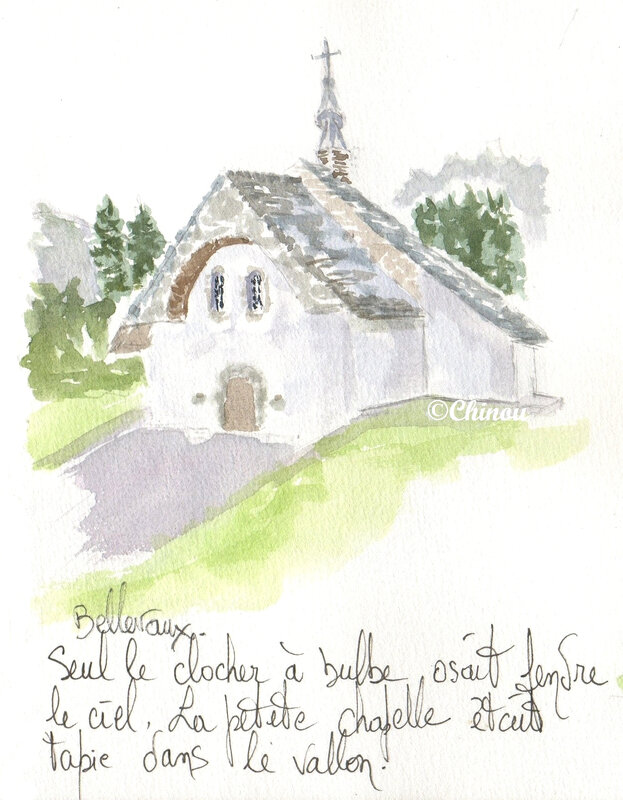 ©Chinou
Bellevaux.
Seul le clocher à bulbe osait fendre
le ciel. La petite chapelle était
tapie dans le vallon.